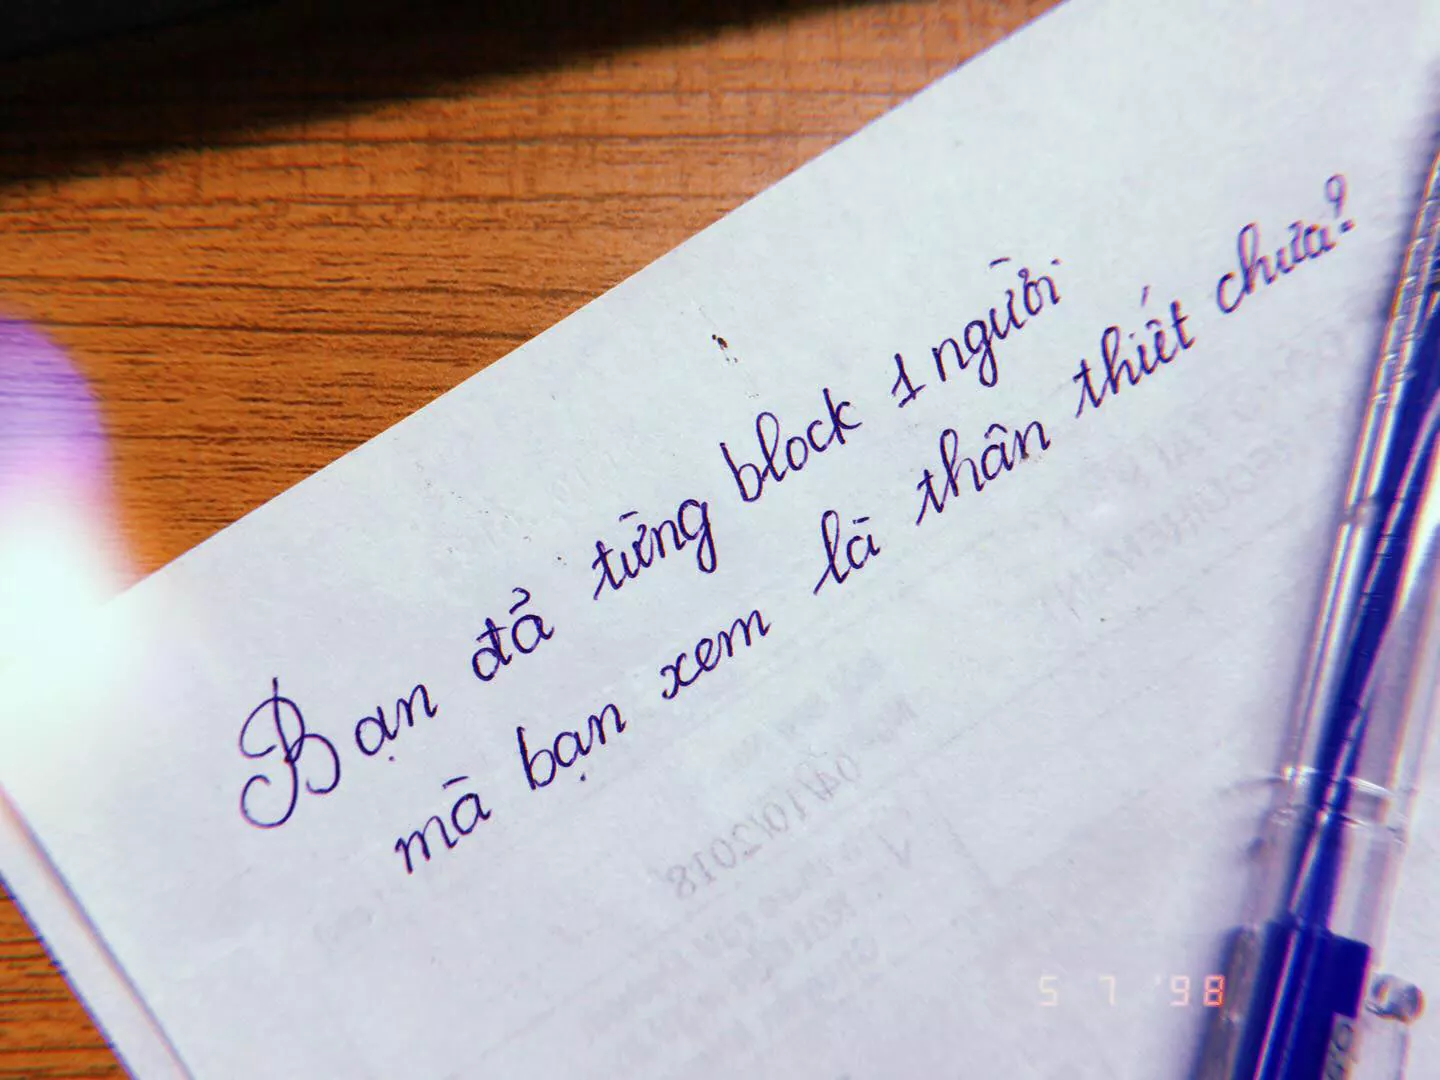 Bạn đả từng block 1 người
mà bạn xem là thân thiết chưa?
04/10/2018
5 7 '98